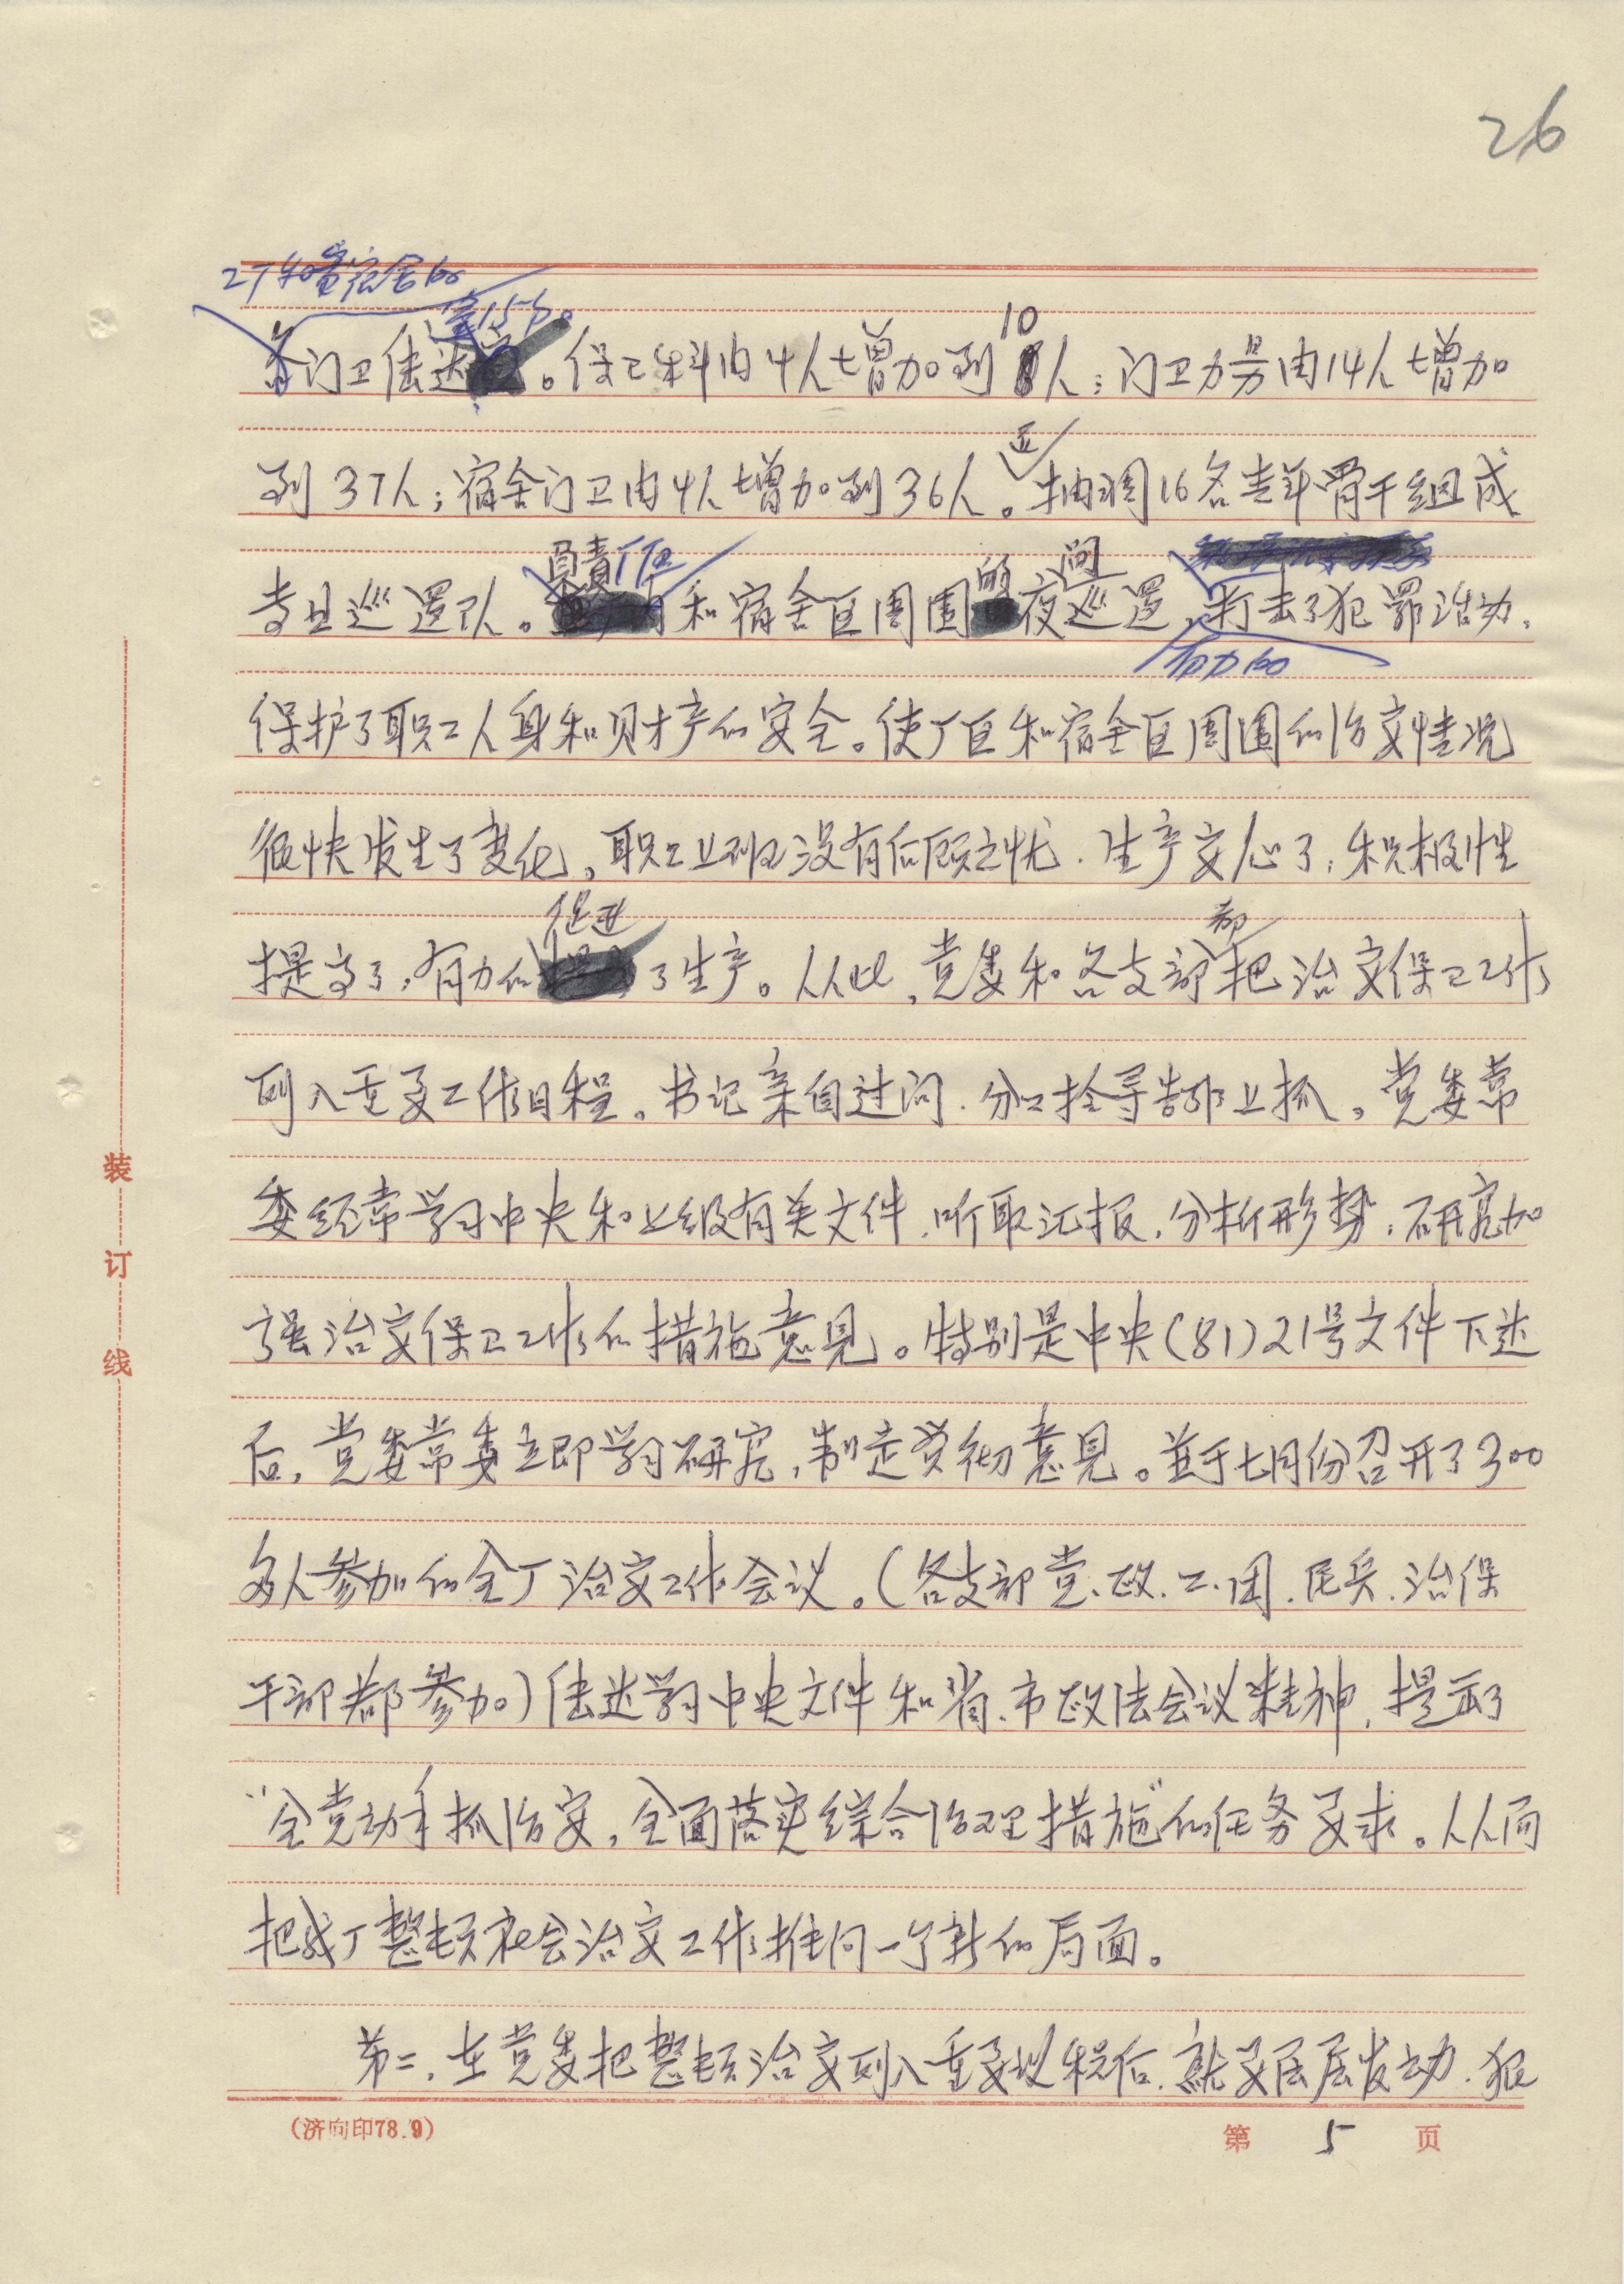 26
各门卫传达室15个。保卫科由4人增加到10人；门卫力量由14人增加
到37人；宿舍门卫由4人增加到36人。并抽调16名青年骨干组成
专业巡逻队。负责厂区和宿舍区周围的夜间巡逻，有力的打击了犯罪活动，
保护了职工人身和财产的安全。使厂区和宿舍区周围的治安情况
很快发生了变化，职工上班没有后顾之忧，生产安心了，积极性
提高了，有力的促进了生产。从此，党委和各支部都把治安保卫工作
列入重要工作日程。书记亲自过问，分工领导靠上抓。党委常
委经常学习中央和上级有关文件，听取汇报，分析形势，研究加
强治安保卫工作的措施意见。特别是中央(81)21号文件下达
后，党委常委立即学习研究，制定贯彻意见。并于七月份召开了300
多人参加的全厂治安工作会议。(各支部党、政、工、团、民兵、治保
干部都参加)传达学习中央文件和省、市政法会议精神，提出了
“全党动手抓治安，全面落实综合治理措施”的任务要求。从而
把我厂整顿社会治安工作推向一个新的局面。
第二，在党委把整顿治安列入重要议程后，就要层层发动，狠
装订线
(济向印78.9)
第5页